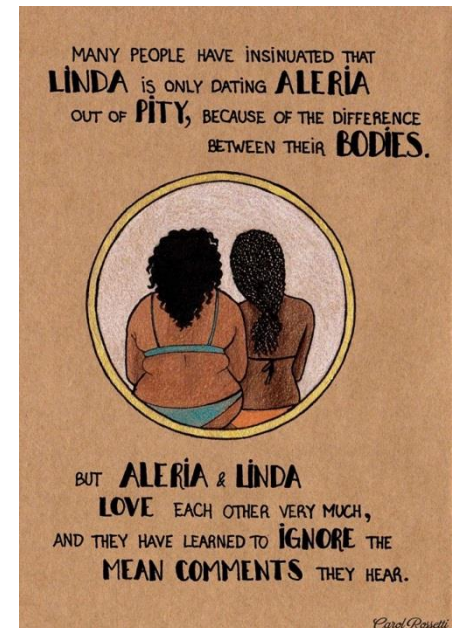 MANY PEOPLE HAVE INSINUATED THAT
LINDA IS ONLY DATING ALERIA
OUT OF PITY, BECAUSE OF THE DIFFERENCE
BETWEEN THEIR BODIES.
BUT ALERIA & LINDA
LOVE EACH OTHER VERY MUCH,
AND THEY HAVE LEARNED TO IGNORE THE
MEAN COMMENTS THEY HEAR.
Carol Rossetti